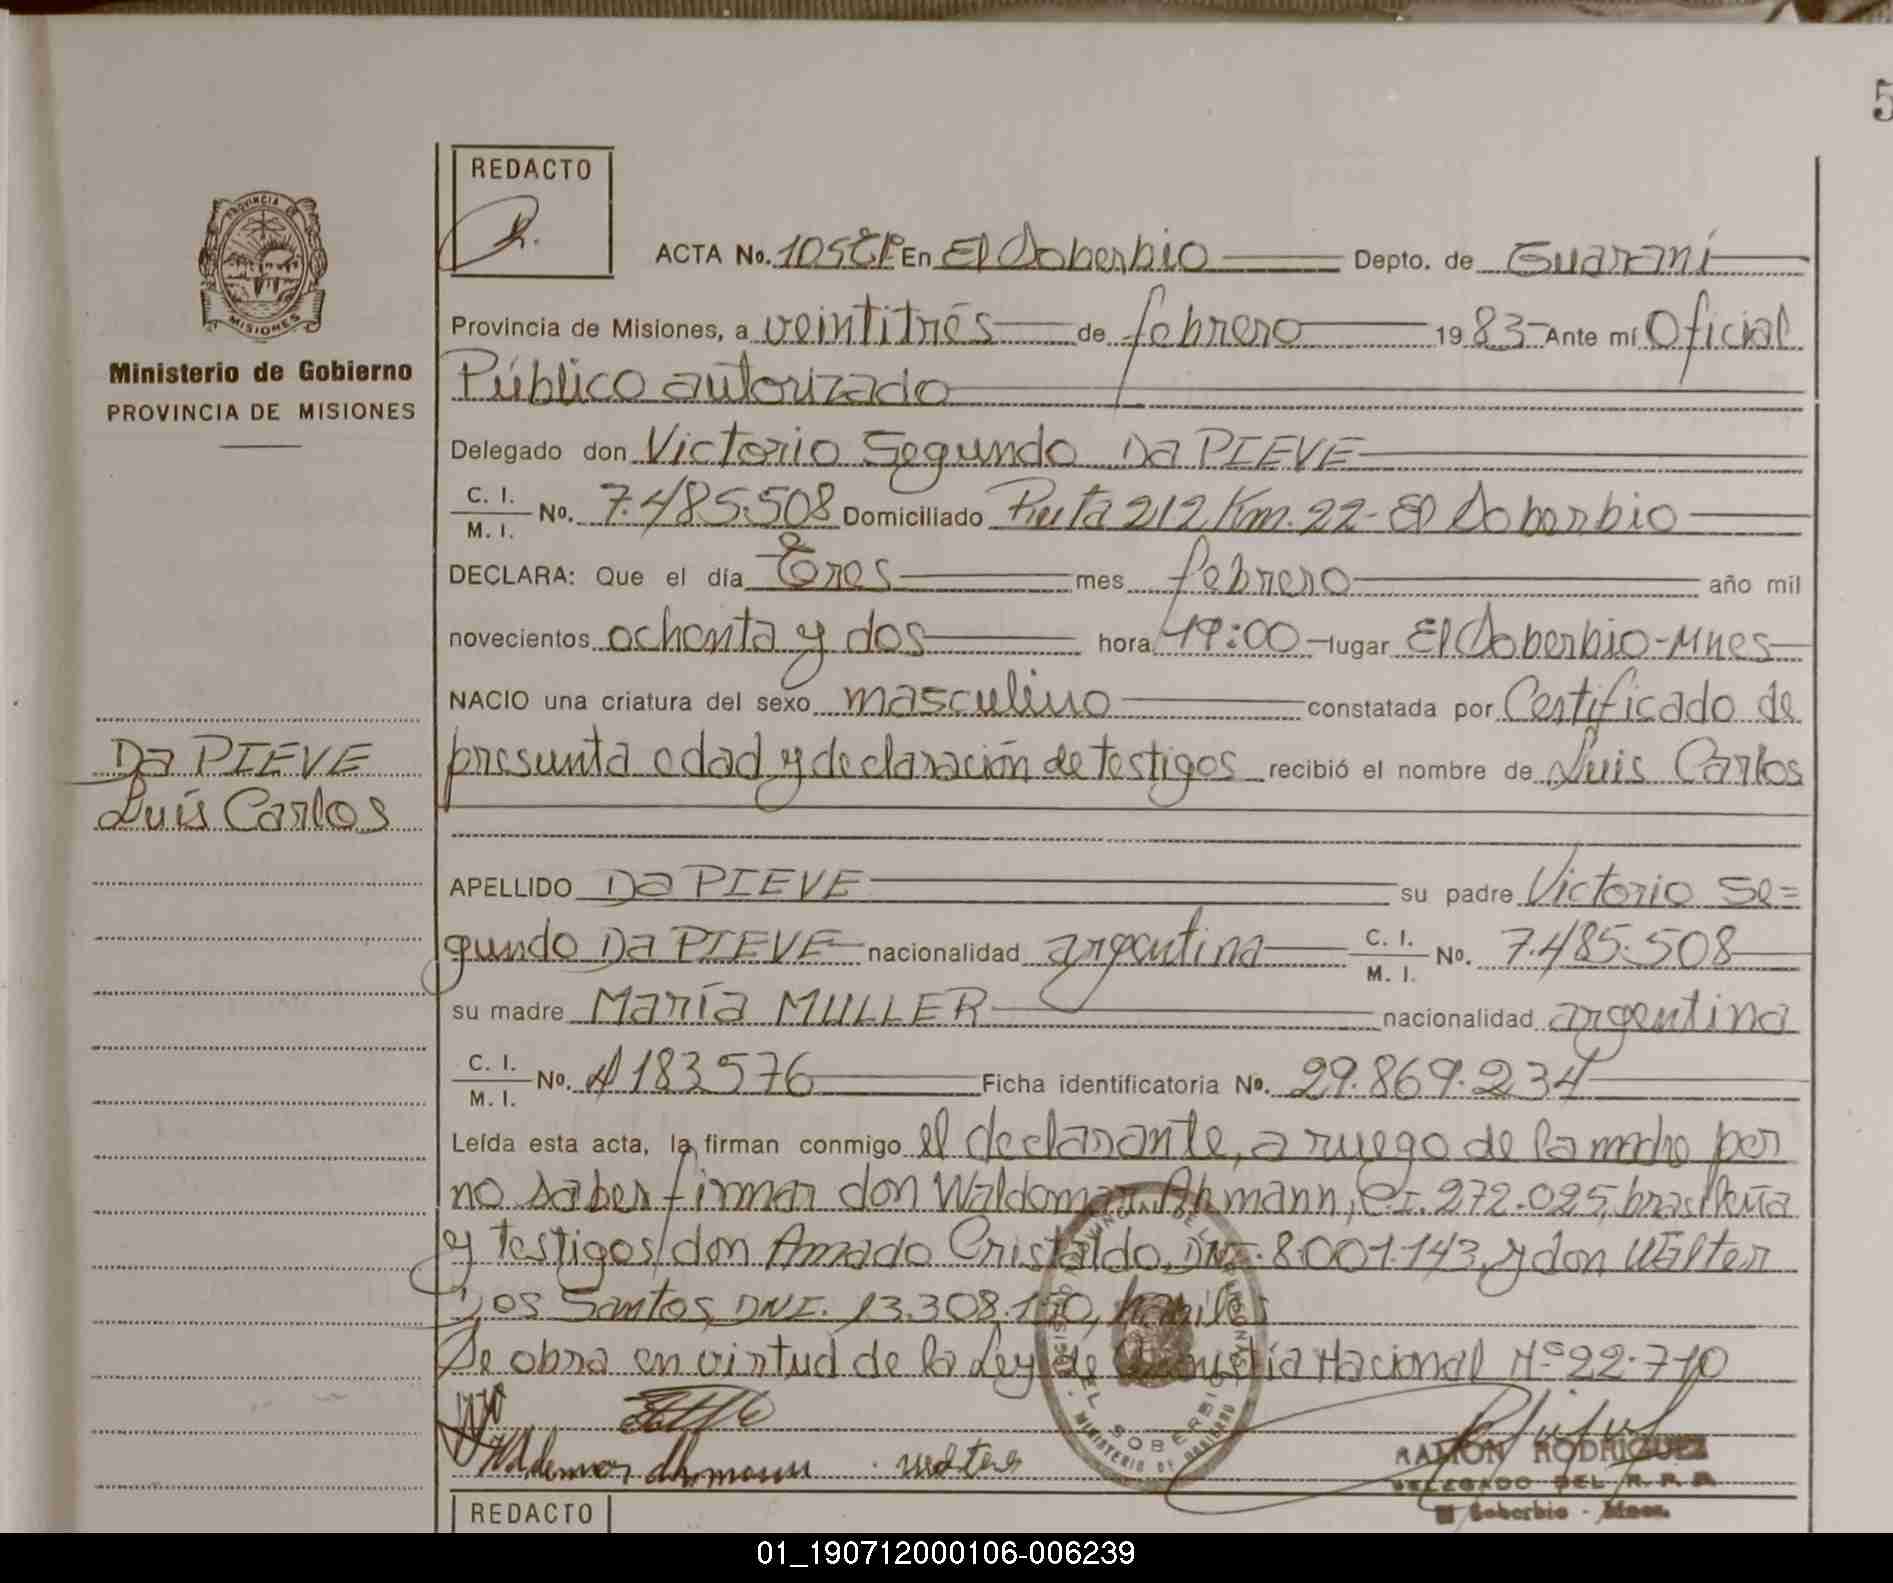 5
REDACTO
PROVINCIA DE
MISIONES
Ministerio de Gobierno
PROVINCIA DE MISIONES
ACTA No. 105 En El Soberbio Depto. de Guaraní
Provincia de Misiones, a veintitrés de febrero 1983 Ante mí Oficial
Público autorizado
Delegado don Victorio Segundo Da PIEVE
C. I.
M. I. No. 7.485.508 Domiciliado Ruta 212 Km. 22- El Soberbio
DECLARA: Que el día Tres mes febrero año mil
novecientos ochenta y dos hora 19:00 lugar El Soberbio-Mnes
NACIO una criatura del sexo masculino constatada por Certificado de
presunta edad y declaración de testigos recibió el nombre de Luis Carlos
Da PIEVE
Luis Carlos
APELLIDO Da PIEVE su padre Victorio Se=
gundo Da PIEVE nacionalidad argentina C. I. M. I. No. 7.485.508
su madre María MULLER nacionalidad argentina
C. I.
M. I. No. 183576 Ficha identificatoria No. 29.869.234
Leída esta acta, la firman conmigo el declarante, a ruego de la madre por
no saber firmar don Waldomar Ahmann, CI. 272.025, brasileña
y testigos don Amado Cristaldo, DNI. 8.001.143, y don Walter
Dos Santos, DNI. 13.308.150, hábiles
Se obra en virtud de la Ley de Amnistía Nacional Nº 22.710
EL SOBERBIO
MINISTERIO DE GOBIERNO
RAMON RODRIGUEZ
DELEGADO DEL R. P. P.
El Soberbio - Mnes.
REDACTO
01_190712000106-006239